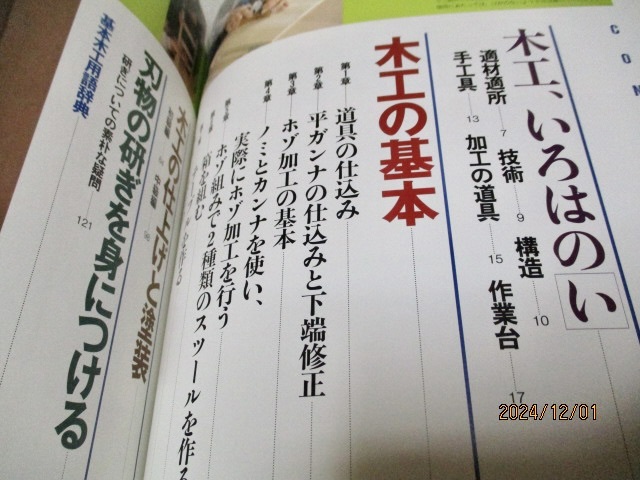 CON
木工、いろはの「い」
適材適所 7 技術 9 構造 10
手工具 13 加工の道具 15 作業台 17
木工の基本
第1章 道具の仕込み
第2章 平ガンナの仕込みと下端修正
第3章 ホゾ加工の基本
第4章 ノミとカンナを使い、
実際にホゾ加工を行う
ホゾ組みで2種類のスツールを作る
箱を組む
木工の仕上げと塗装
刃物の研ぎを身につける
研ぎについての素朴な疑問
基本木工用語辞典 121
2024/12/01